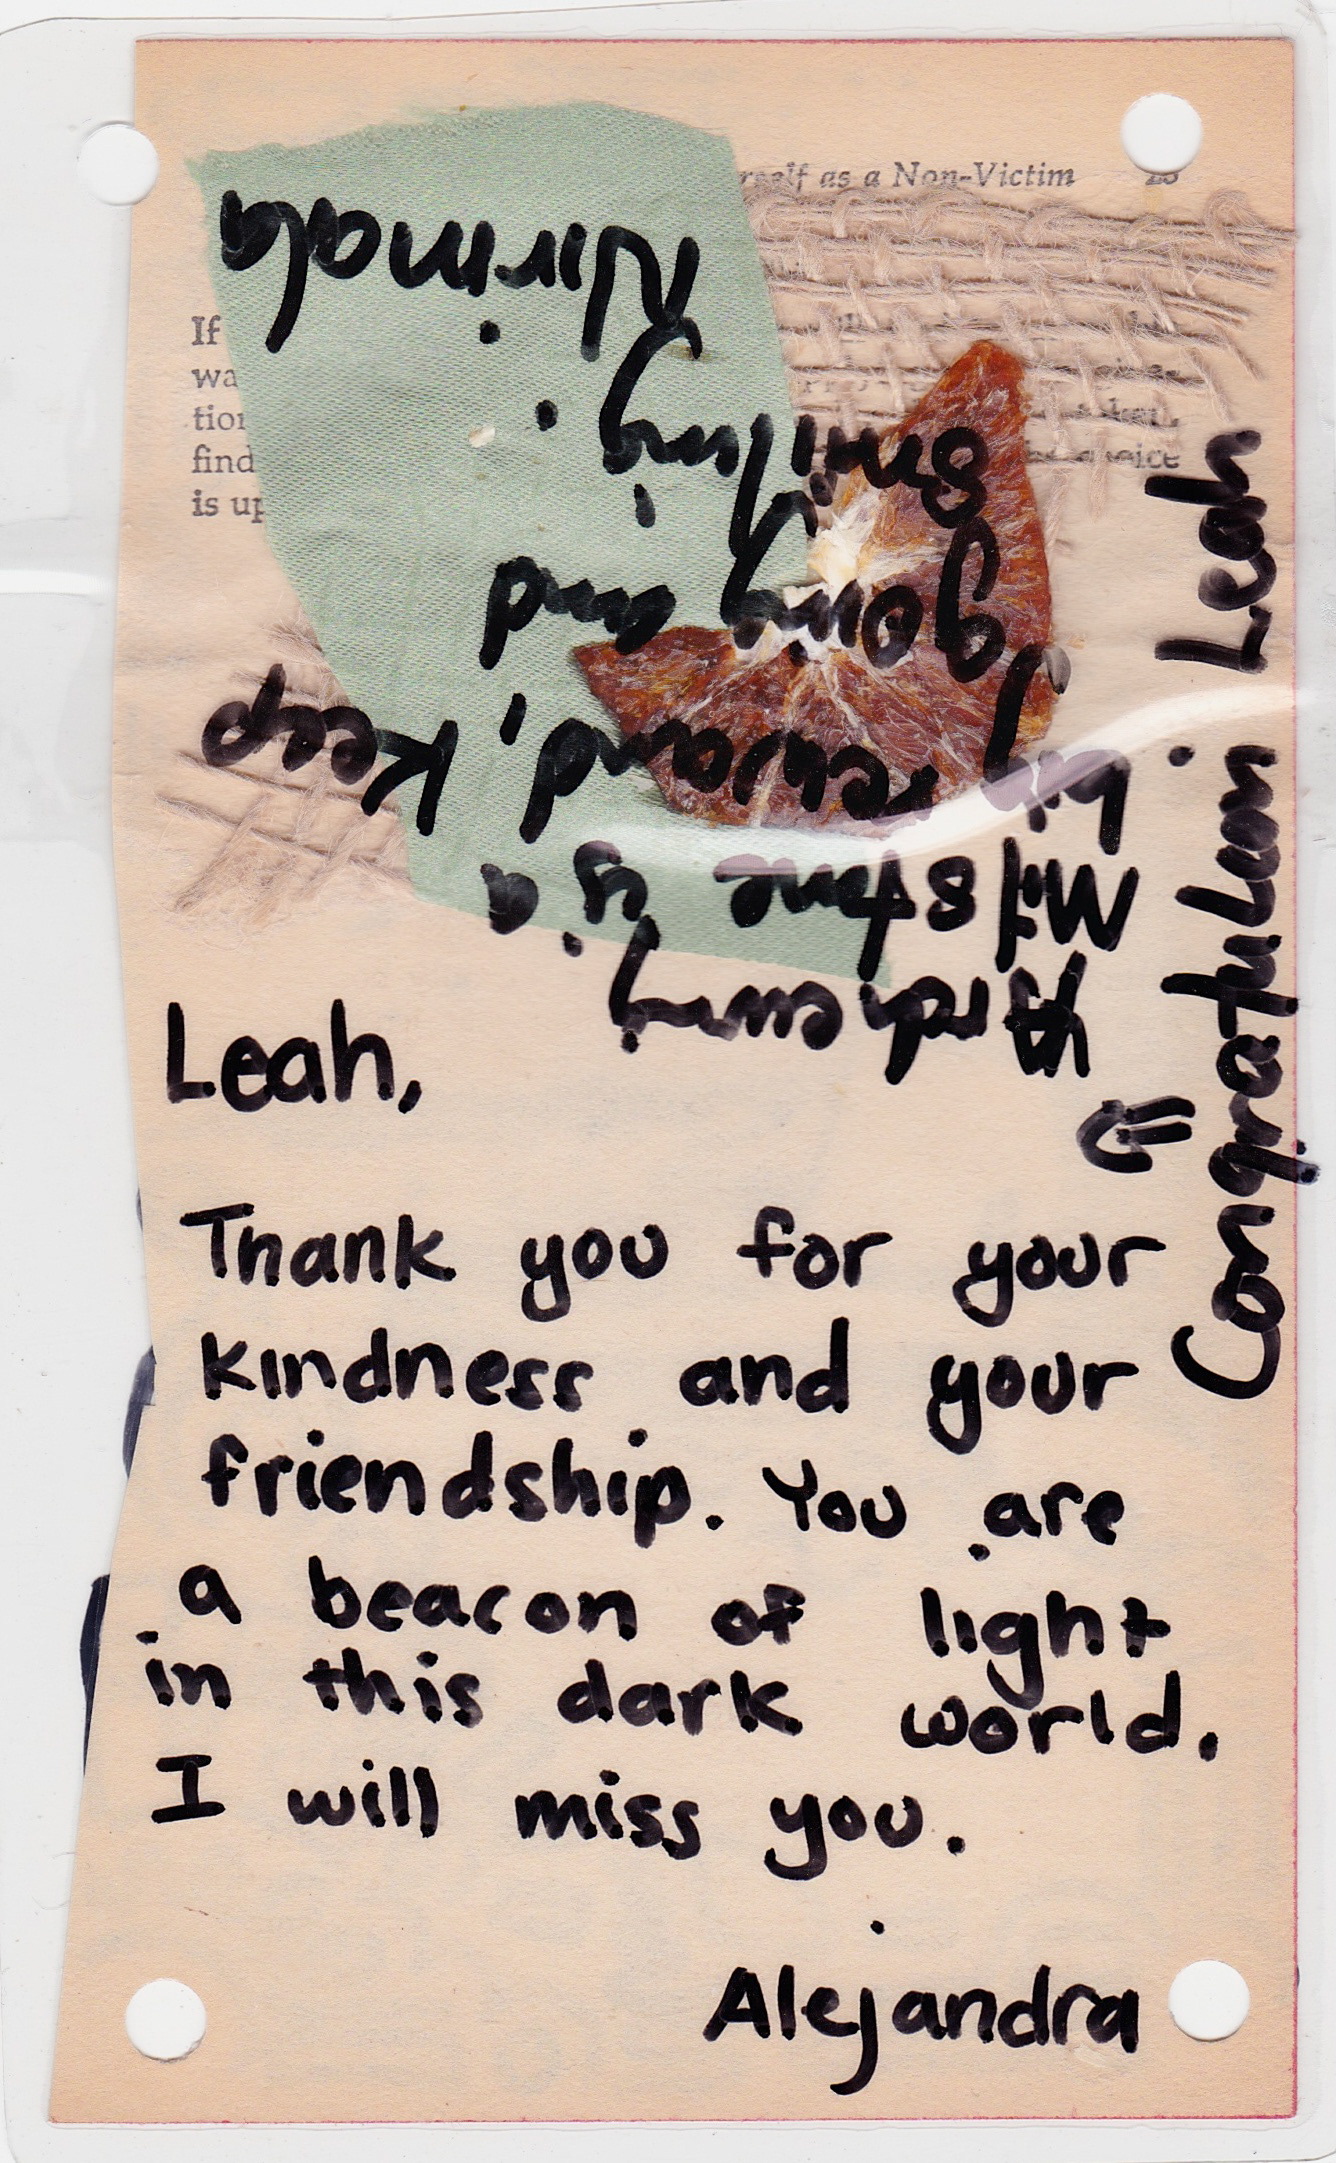 rself as a Non-Victim
If
wa
tion
find
is up
choice
Leah
Milstone is a
big reward, Keep
going and
smiling.
Nirmala
Leah,
Thank you for your
kindness and your
friendship. You are
a beacon of light
in this dark world.
I will miss you.
Alejandra